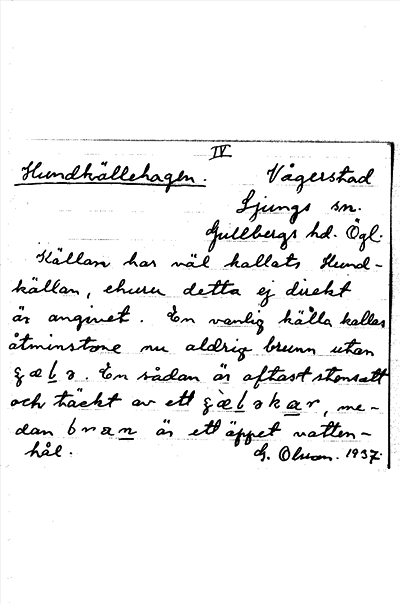 IV
Hundkällehagen. Vågerstad
Ljungs sn.
Gullbergs hd. Ögl.
Källan har väl kallats Hund-
källan, ehuru detta ej direkt
är angivet. En vanlig källa kallas
åtminstone nu aldrig brunn utan
En sådan är oftast stensatt
och täckt av ett me-
dan är ett öppet vatten-
hål. G. Olson. 1937.